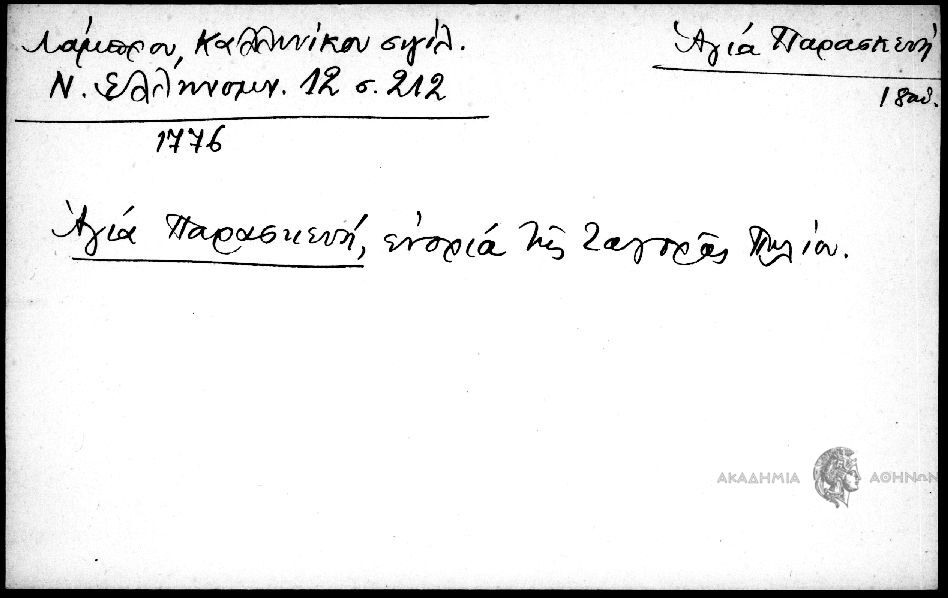 Λάμπρου, Καλλινίκου σιγίλ.
Ν. Ἑλληνομν. 12 σ. 212
1776
Ἁγία Παρασκευή
18 αἰ.
Ἁγία Παρασκευή, ἐνορία τῆς Ζαγορᾶς Πηλίου.
ΑΚΑΔΗΜΙΑ ΑΘΗΝΩΝ